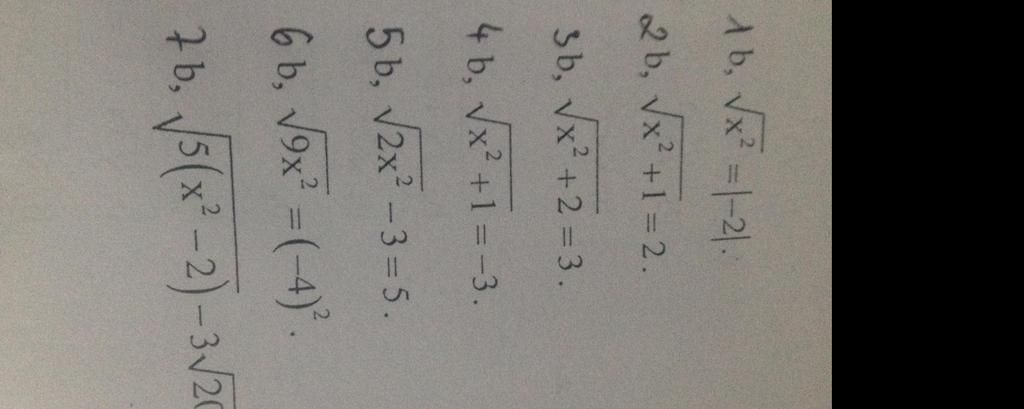 1b, √x² = |-2|.
2b, √x² + 1 = 2.
3b, √x² + 2 = 3.
4b, √x² + 1 = -3.
5b, √2x² - 3 = 5.
6b, √9x² = (-4)².
7b, √5(x² - 2) - 3√2